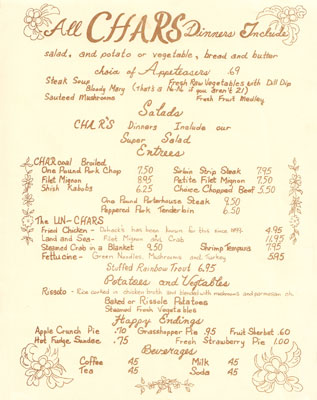 All CHARS Dinners Include
salad, and potato or vegetable, bread and butter
choice of Appeteasers .69
Steak Soup Fresh Raw Vegetables with Dill Dip
Bloody Mary (That's a No-No if you aren't 21)
Sauteed Mushrooms Fresh Fruit Medley
Salads
CHAR'S Dinners Include our
Super Salad
Entrees
CHARcoal Broiled
One Pound Pork Chop 7.50 Sirloin Strip Steak 7.95
Filet Mignon 8.95 Petite Filet Mignon 7.50
Shish Kabobs 6.25 Choice Chopped Beef 5.50
One Pound Porterhouse Steak 9.50
Peppered Pork Tenderloin 6.50
The UN-CHARS
Fried Chicken - has been known for this since 4.95
Land and Sea - Filet Mignon and Crab 11.95
Steamed Crab in a Blanket 9.50 Shrimp Tempura 7.95
Fettucine - Green Noodles, Mushrooms and Turkey 5.95
Stuffed Rainbow Trout 6.95
Potatoes and Vegtables
Rissoto - Rice cooked in chicken broth and blended with mushrooms and parmesian ch.
Baked or Rissole Potatoes
Steamed Fresh Vegetables
Happy Endings
Apple Crunch Pie .70 Grasshopper Pie .95 Fruit Sherbet .60
Hot Fudge Sundae .75 Fresh Strawberry Pie 1.00
Beverages
Coffee .45 Milk .45
Tea .45 Soda .45